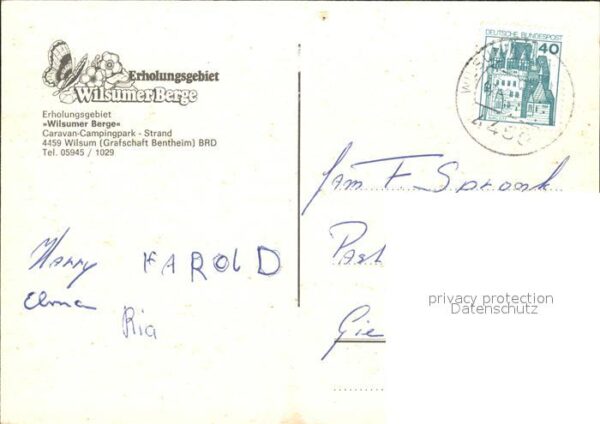 Erholungsgebiet
Wilsumer Berge
Erholungsgebiet
»Wilsumer Berge«
Caravan-Campingpark - Strand
4459 Wilsum (Grafschaft Bentheim) BRD
Tel. 05945 / 1029
Harry HAROLD
Elma
Ria
DEUTSCHE BUNDESPOST
40
Fam F.
Past
Gie
privacy protection
Datenschutz